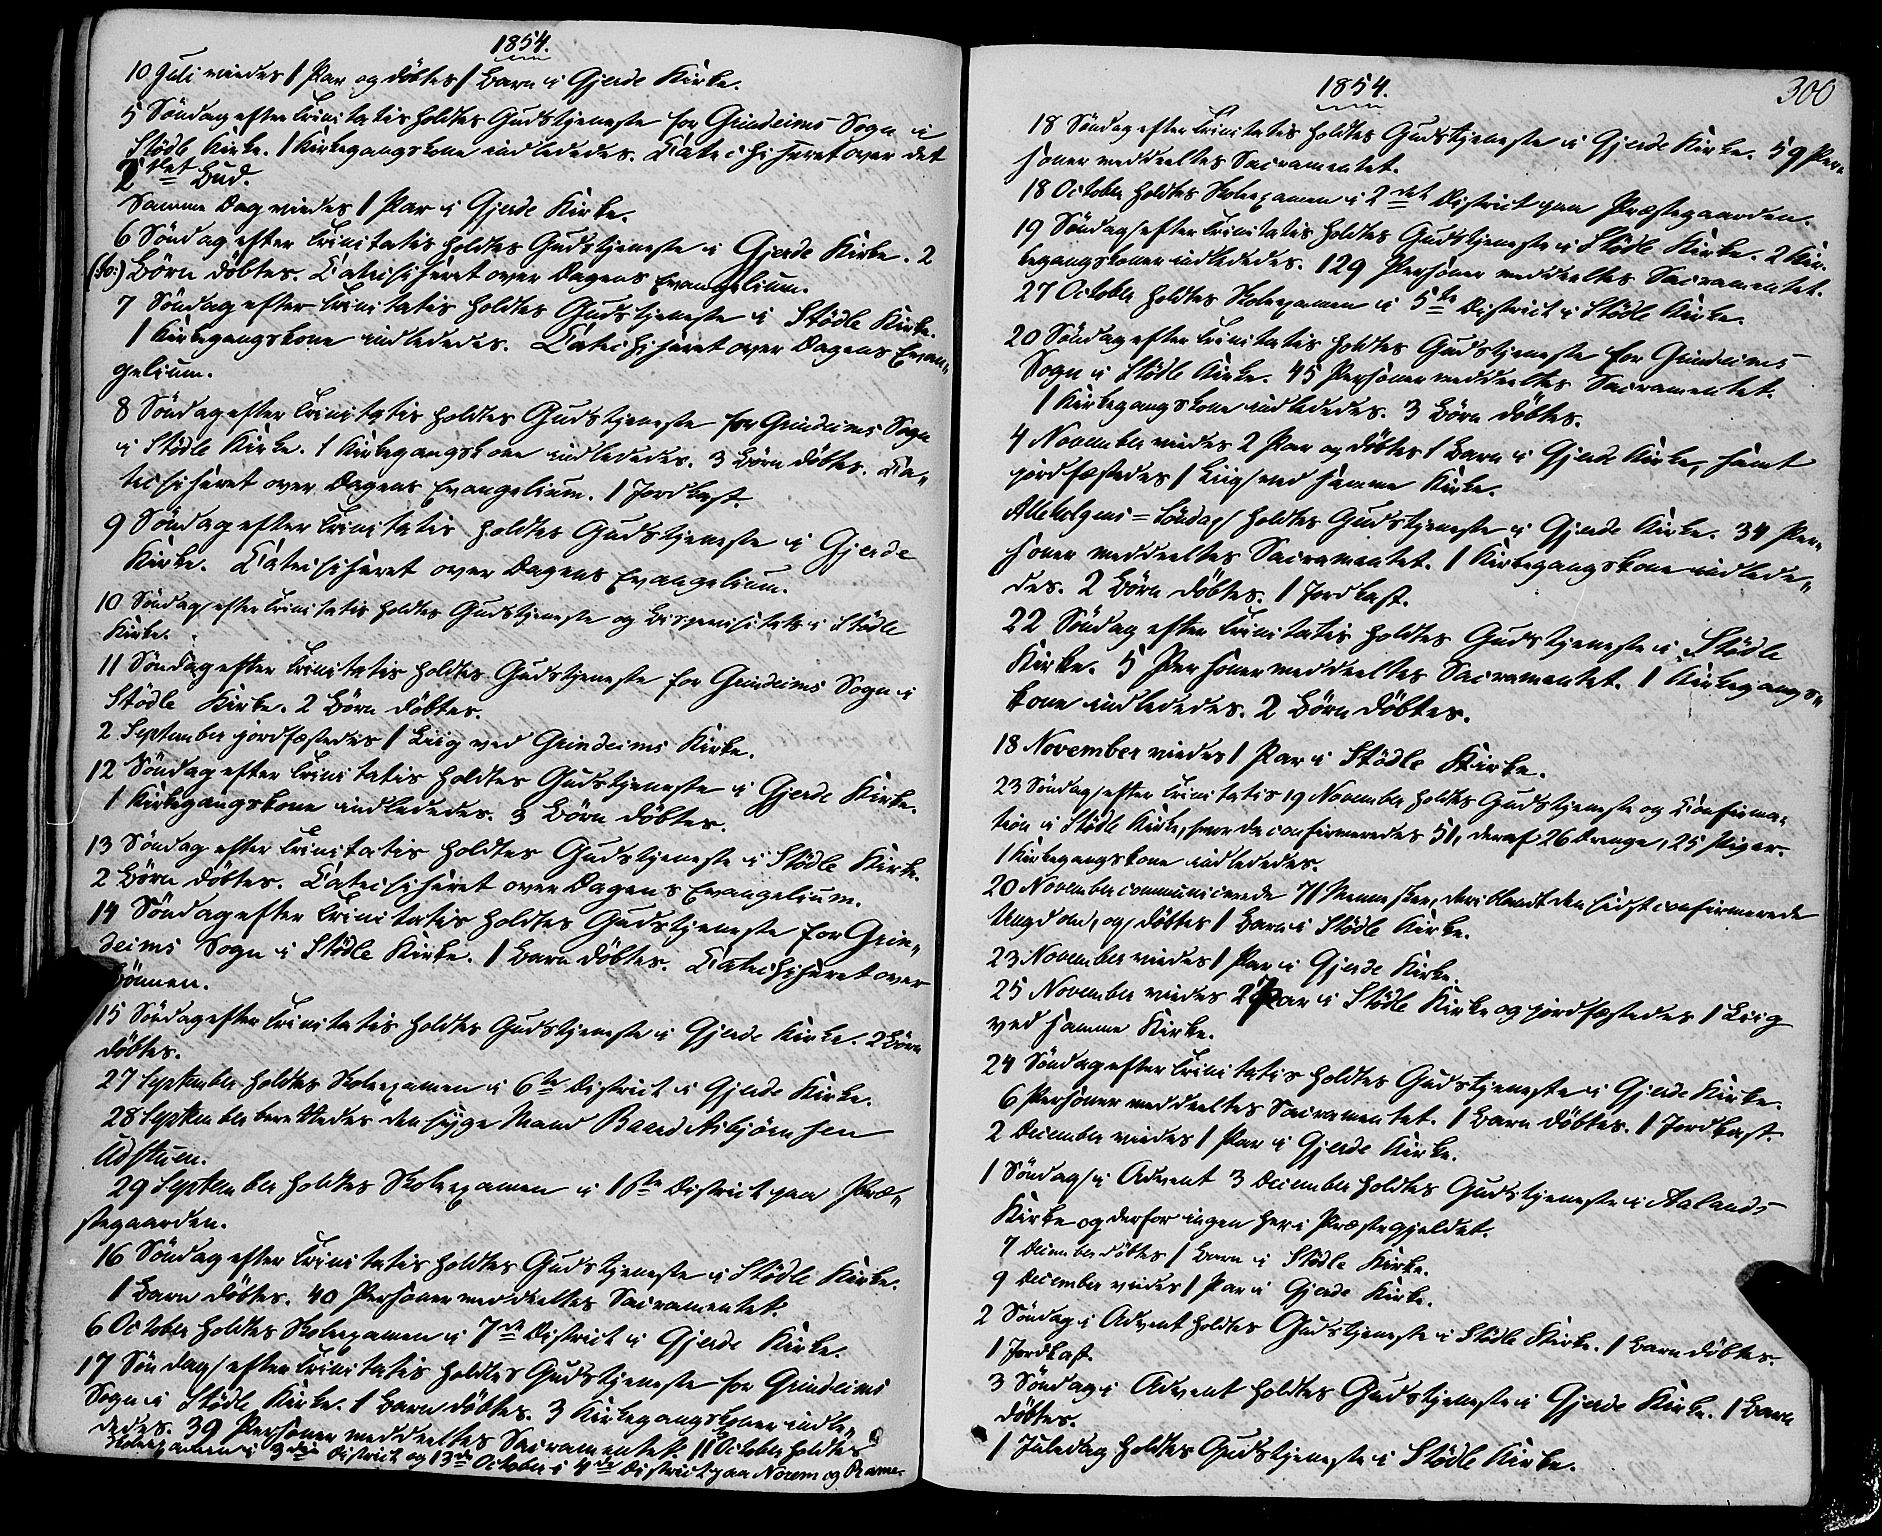 1854.
10 Juli viedes 1 Par og döbtes 1 Barn i Gjerde Kirke.
5 Söndag efter Trinitatis holdtes Gudstjeneste for Grindeims Sogn i
Stödle Kirke. 1 Kirkegangskone indlededes. Catechiseret over det
2det Bud.
Samme Dag viedes 1 Par i Gjerde Kirke.
6 Söndag efter Trinitatis holdtes Gudstjeneste i Gjerde Kirke. 2
(to:) Börn döbtes. Catechiseret over Dagens Evangelium.
7 Söndag efter Trinitatis holdtes Gudstjeneste i Stödle Kirke.
1 Kirkegangskone indlededes. Catechiseret over Dagens Evan-
gelium.
8 Söndag efter Trinitatis holdtes Gudstjeneste for Grindeims Sogn
i Stödle Kirke. 1 Kirkegangskone indlededes. 3 Börn döbtes. Ca-
techiseret over Dagens Evangelium. 1 Jordkast.
9 Söndag efter Trinitatis holdtes Gudstjeneste i Gjerde
Kirke. Catechiseret over Dagens Evangelium.
10 Söndag efter Trinitatis holdtes Gudstjeneste og Bispevisitats i Stödle
Kirke.
11 Söndag efter Trinitatis holdtes Gudstjeneste for Grindeims Sogn i
Stödle Kirke. 2 Börn döbtes.
2 September jordfæstedes 1 Liig ved Grindeims Kirke.
12 Söndag efter Trinitatis holdtes Gudstjeneste i Gjerde Kirke.
1 Kirkegangskone indlededes. 3 Börn döbtes.
13 Söndag efter Trinitatis holdtes Gudstjeneste i Stödle Kirke.
2 Börn döbtes. Catechiseret over Dagens Evangelium.
14 Söndag efter Trinitatis holdtes Gudstjeneste for Grin-
deims Sogn i Stödle Kirke. 1 Barn döbtes. Catechiseret over
Bönnen.
15 Söndag efter Trinitatis holdtes Gudstjeneste i Gjerde Kirke. 2 Börn
döbtes.
27 September holdtes Skoleexamen i 6te District i Gjerde Kirke.
28 September berettedes den syge Mand Baard Asbjörnsen
Udstuen.
29 September holdtes Skoleexamen i 1ste District paa Præ-
stegaarden.
16 Söndag efter Trinitatis holdtes Gudstjeneste i Stödle Kirke.
1 Barn döbtes. 40 Personer meddeeltes Sacramentet.
6 October holdtes Skoleexamen i 7de District i Gjerde Kirke.
17 Söndag efter Trinitatis holdtes Gudstjeneste for Grindeims
Sogn i Stödle Kirke. 1 Barn döbtes. 3 Kirkegangskoner indle-
dedes. 39 Personer meddeeltes Sacramentet. 11 October holdtes
Skoleexamen i 3die District og 13de October i 4de District paa Norem og

300
1854.
18 Söndag efter Trinitatis holdtes Gudstjeneste i Gjerde Kirke. 59 Per-
soner meddeeltes Sacramentet.
18 October holdtes Skoleexamen i 2det District paa Præstegaarden.
19 Söndag efter Trinitatis holdtes Gudstjeneste i Stödle Kirke. 2 Kir-
kegangskoner indlededes. 129 Personer meddeeltes Sacramentet.
27 October holdtes Skoleexamen i 5te District i Stödle Kirke.
20 Söndag efter Trinitatis holdtes Gudstjeneste for Grindeims
Sogn i Stödle Kirke. 45 Personer meddeeltes Sacramentet.
1 Kirkegangskone indlededes. 3 Börn döbtes.
4 November viedes 2 Par og döbtes 1 Barn i Gjerde Kirke, samt
jordfæstedes 1 Liig ved samme Kirke.
Allehelgens-Söndag holdtes Gudstjeneste i Gjerde Kirke. 34 Per-
soner meddeeltes Sacramentet. 1 Kirkegangskone indlede-
des. 2 Börn döbtes. 1 Jordkast.
22 Söndag efter Trinitatis holdtes Gudstjeneste i Stödle
Kirke. 5 Personer meddeeltes Sacramentet. 1 Kirkegangs-
kone indlededes. 2 Börn döbtes.
18 November viedes 1 Par i Stödle Kirke.
23 Söndag efter Trinitatis 19 November holdtes Gudstjeneste og Confirma-
tion i Stödle Kirke, hvor da confirmeredes 51, deraf 26 Drenge, 25 Piger.
1 Kirkegangskone indlededes.
20 November communicerede 71 Mennesker, deriblandt den sidst confirmerede
Ungdom, og döbtes 1 Barn i Stödle Kirke.
23 November viedes 1 Par i Gjerde Kirke.
25 November viedes 2 Par i Stödle Kirke og jordfæstedes 1 Liig
ved samme Kirke.
24 Söndag efter Trinitatis holdtes Gudstjeneste i Gjerde Kirke.
6 Personer meddeeltes Sacramentet. 1 Barn döbtes. 1 Jordkast.
2 December viedes 1 Par i Gjerde Kirke.
1 Söndag i Advent 3 December holdtes Gudstjeneste i Aalands
Kirke og derfor ingen her i Præstegjeldet.
7 December döbtes 1 Barn i Stödle Kirke.
9 December viedes 1 Par i Gjerde Kirke.
2 Söndag i Advent holdtes Gudstjeneste i Stödle Kirke. 1 Barn döbtes.
1 Jordkast.
3 Söndag i Advent holdtes Gudstjeneste i Gjerde Kirke. 1 Barn
döbtes.
1 Juledag holdtes Gudstjeneste i Stödle Kirke.